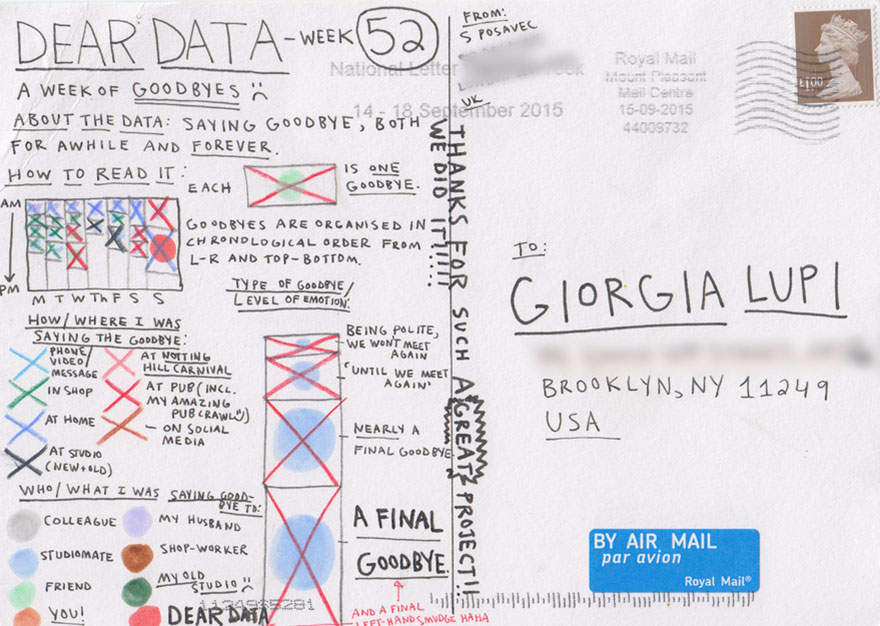 DEAR DATA - WEEK 52
A WEEK OF GOODBYES :(
ABOUT THE DATA: SAYING GOODBYE, BOTH
FOR AWHILE AND FOREVER.
HOW TO READ IT:
EACH
IS ONE
GOODBYE.
AM
PM
M T W Th F S S
GOODBYES ARE ORGANISED IN
CHRONOLOGICAL ORDER FROM
L-R AND TOP-BOTTOM.
TYPE OF GOODBYE/
LEVEL OF EMOTION:
BEING POLITE,
WE WON'T MEET
AGAIN
'UNTIL WE MEET
AGAIN'
NEARLY A
FINAL GOODBYE
A FINAL
GOODBYE.
AND A FINAL
LEFT-HAND SMUDGE HAHA
HOW/WHERE I WAS
SAYING THE GOODBYE:
PHONE/
VIDEO/
MESSAGE
IN SHOP
AT HOME
AT STUDIO
(NEW+OLD)
AT NOTTING
HILL CARNIVAL
AT PUB (INCL.
MY AMAZING
PUB CRAWL :))
- ON SOCIAL
MEDIA
WHO/WHAT I WAS SAYING GOOD-
BYE TO:
COLLEAGUE
STUDIOMATE
FRIEND
YOU!
MY HUSBAND
SHOP-WORKER
MY OLD
STUDIO :(
DEAR DATA
THANKS FOR SUCH A GREAT PROJECT!!
WE DID IT!!!!!...
FROM:
S POSAVEC
UK
National Letter
14 - 18 September 2015
Royal Mail
Mount Pleasant
Mail Centre
15-09-2015
44009732
£1.00
TO:
GIORGIA LUPI
BROOKLYN, NY 11249
USA
BY AIR MAIL
par avion
Royal Mail®